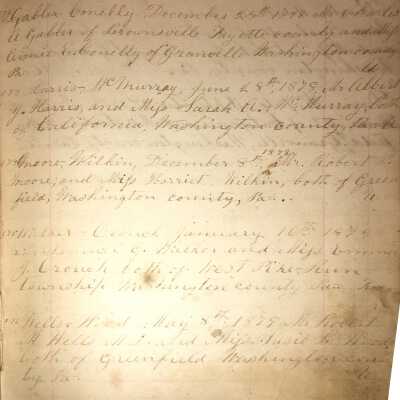 Gabler Conelly December 25th, 1878 Mr
A Gabler of Brownsville Fayette County and Miss
Conelly of Granville Washington county
Pa
Harris - Mc Murray, June 28th, 1878, Mr Albert
G. Harris, and Miss Sarah A. Mc Murray, both
of California, Washington County, Penna
Moore, Wilkin, December 8th, 1878, Mr. Robert
Moore, and Miss Harriet Wilkin, both of Green
field, Washington county, Pa.
Walker - Crouch January 16th 1879
Walker and Miss Emma
J. Crouch both of West Pike Run
township Washington county Pa.
Wells, Wood May 8th, 1879 Mr Robert
H Wells M.D. and Miss Susie Wood
both of Greenfield Washington coun
ty Pa.